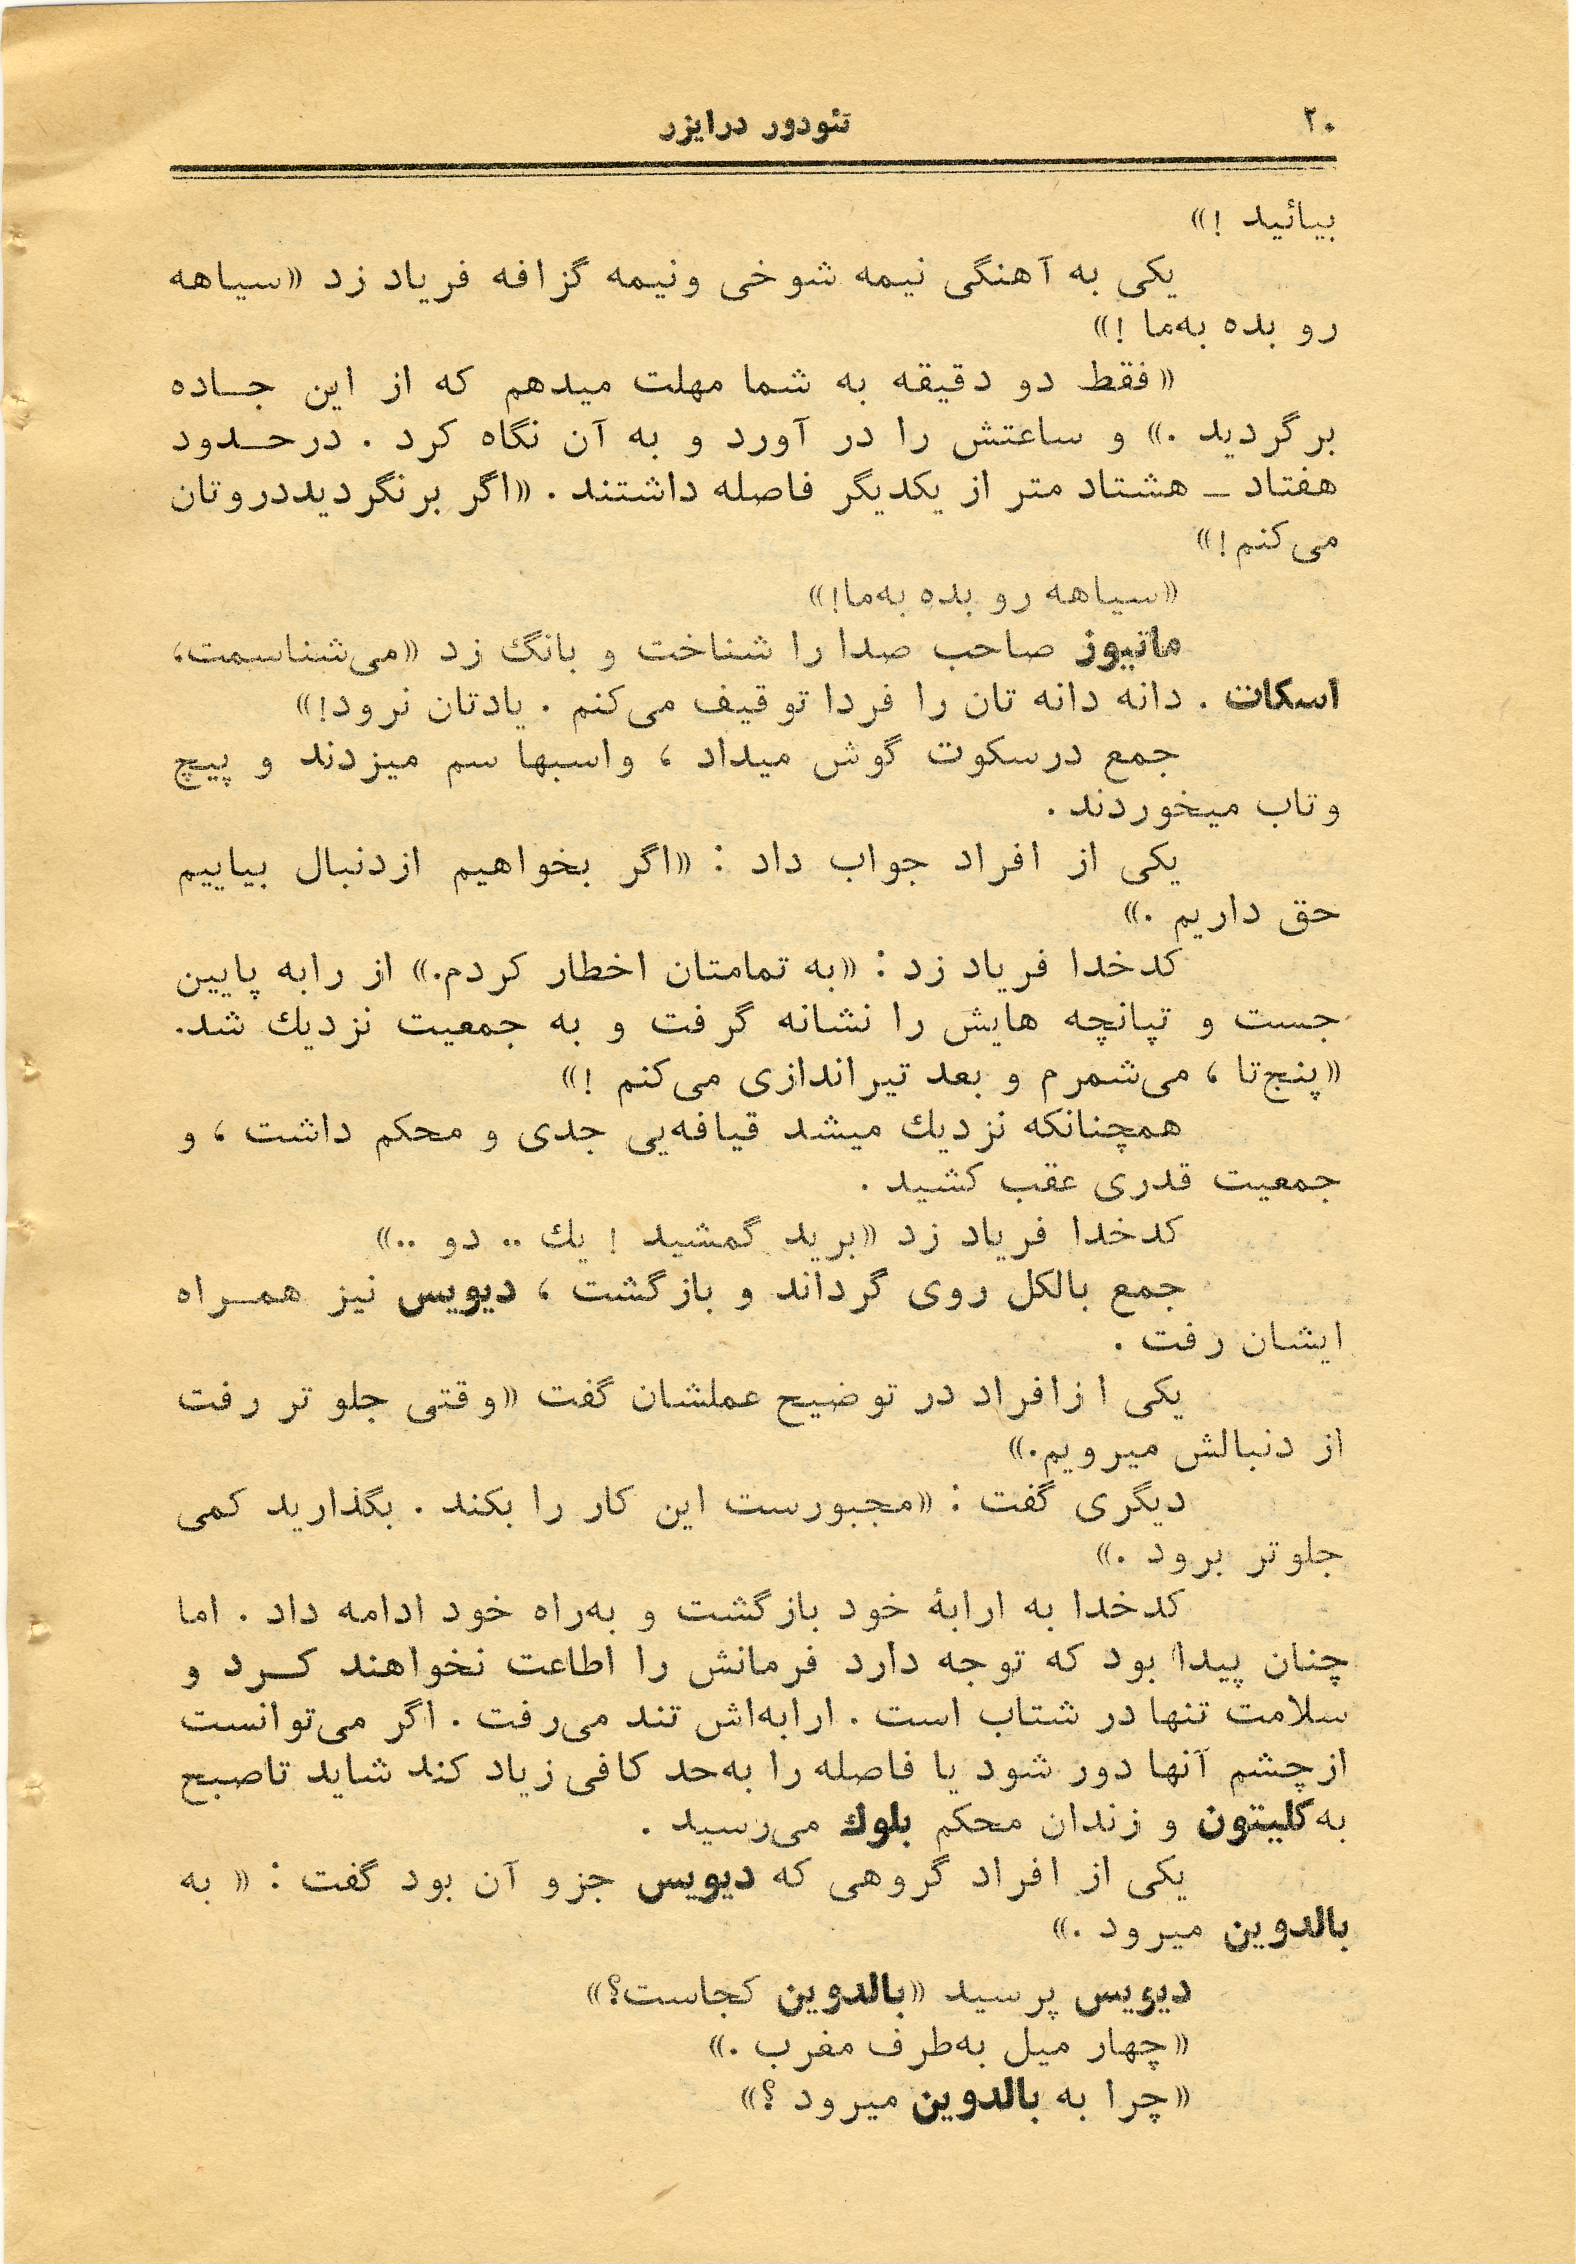 ۲۰
تئودور درایزر
بیائید !»
یکی به آهنگی نیمه شوخی ونیمه گزافه فریاد زد «سیاهه
رو بده به‌ما !»
«فقط دو دقیقه به شما مهلت میدهم که از این جـاده
برگردید .» و ساعتش را در آورد و به آن نگاه کرد . درحـدود
هفتاد ــ هشتاد متر از یکدیگر فاصله داشتند . «اگر برنگردیددروتان
می‌کنم!»
«سیاهه رو بده به‌ما!»
ماتیوز صاحب صدا را شناخت و بانگ زد «می‌شناسمت،
اسکات . دانه دانه تان را فردا توقیف می‌کنم . یادتان نرود!»
جمع درسکوت گوش میداد ، واسبها سم میزدند و پیچ
وتاب میخوردند .
یکی از افراد جواب داد : «اگر بخواهیم ازدنبال بیاییم
حق داریم .»
کدخدا فریاد زد : «به تمامتان اخطار کردم.» از رابه پایین
جست و تپانچه هایش را نشانه گرفت و به جمعیت نزدیك شد.
«پنج‌تا ، می‌شمرم و بعد تیراندازی می‌کنم !»
همچنانکه نزدیك میشد قیافه‌یی جدی و محکم داشت ، و
جمعیت قدری عقب کشید .
کدخدا فریاد زد «برید گمشید ! یك .. دو ..»
جمع بالکل روی گرداند و بازگشت ، دیویس نیز همـراه
ایشان رفت .
یکی ا زافراد در توضیح عملشان گفت «وقتی جلو تر رفت
از دنبالش میرویم.»
دیگری گفت : «مجبورست این کار را بکند . بگذارید کمی
جلوتر برود .»
کدخدا به ارابهٔ خود بازگشت و به‌راه خود ادامه داد . اما
چنان پیدا بود که توجه دارد فرمانش را اطاعت نخواهند کـرد و
سلامت تنها در شتاب است . ارابه‌اش تند می‌رفت . اگر می‌توانست
ازچشم آنها دور شود یا فاصله را به‌حد کافی زیاد کند شاید تاصبح
به‌کلیتون و زندان محکم بلوك می‌رسید .
یکی از افراد گروهی که دیویس جزو آن بود گفت : « به
بالدوین میرود .»
دیویس پرسید «بالدوین کجاست؟»
«چهار میل به‌طرف مغرب .»
«چرا به بالدوین میرود ؟»